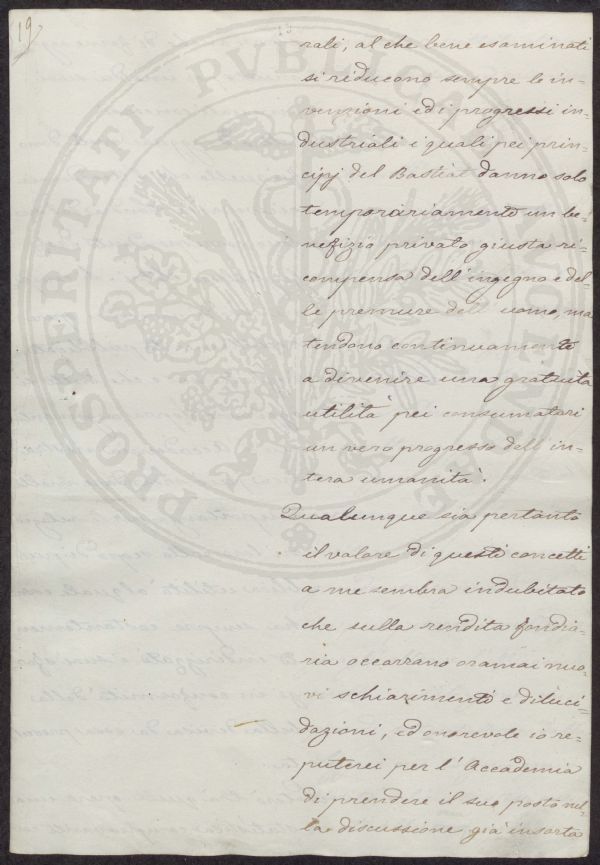 19
rali, al che bene esaminati
si riducono sempre le in-
venzioni ed i progressi in-
dustriali i quali pei prin-
cipj del Bastiat danno solo
temporariamente un be-
nefizio privato giusta ri-
compensa dell'ingegno e del-
le premure dell'uomo, ma
tendono continuamente
a divenire una gratuita
utilità pei consumatori
un vero progresso dell'in-
tera umanità.
Qualunque sia pertanto
il valore di questi concetti
a me sembra indubitato
che sulla rendita fondia-
ria occorrano oramai nuo-
vi schiarimenti e diluci-
dazioni, ed onorevole io re-
puterei per l'Accademia
di prendere il suo posto nel-
la discussione già insorta
PROSPERITATI PUBLICAE AUGENDAE